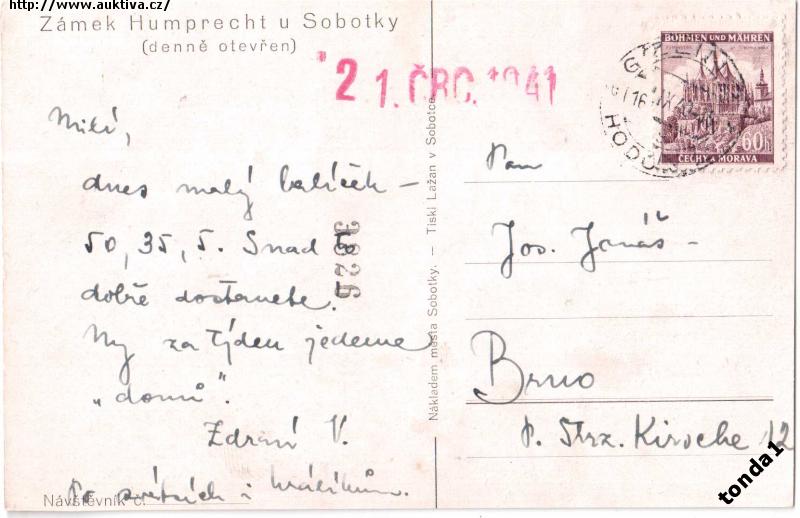 http://www.auktiva.cz/
Zámek Humprecht u Sobotky
(denně otevřen)
21. ČRC. 1941
Milí,
dnes malý balíček –
50, 35, 5. Snad to
dobře dostanete.
My za týden jedeme
„domů".
Zdraví V.
i
Návštěvník č.
3826
Nákladem města Sobotky. — Tiskl Lažan v Sobotce.
BÖHMEN UND MÄHREN
60h
ČECHY A MORAVA
Pan
Jos. Jonáš –
Brno
Kirsche 12
tonda1